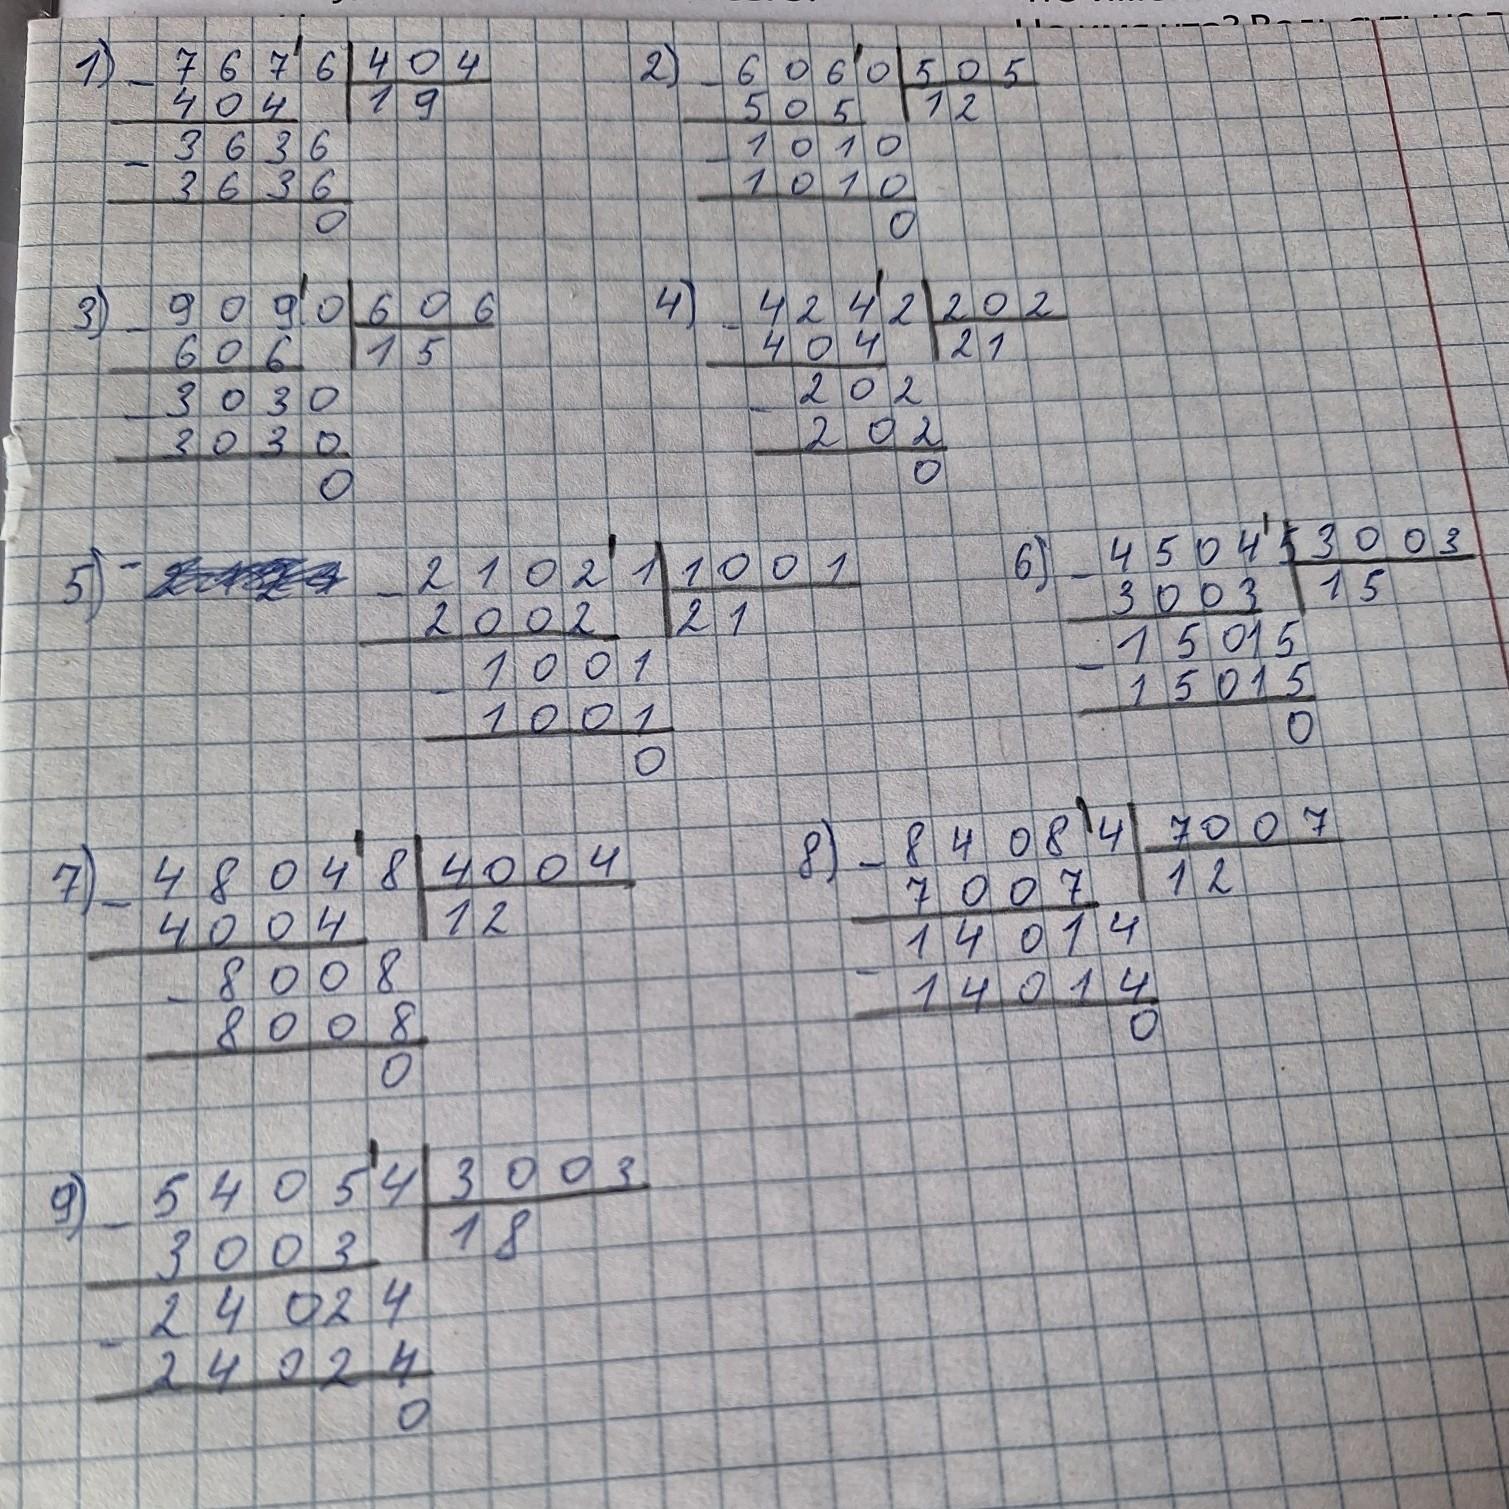 1) - 767'6 | 404
404 | 19
- 3636
3636
0
2) - 606'0 | 505
505 | 12
- 1010
1010
0
3) - 909'0 | 606
606 | 15
- 3030
3030
0
4) - 424'2 | 202
404 | 21
- 202
202
0
5) - - 2102'1 | 1001
2002 | 21
- 1001
1001
0
6) - 4504'5 | 3003
3003 | 15
- 15015
15015
0
7) - 4804'8 | 4004
4004 | 12
- 8008
8008
0
8) - 8408'4 | 7007
7007 | 12
- 14014
14014
0
9) - 5405'4 | 3003
3003 | 18
- 24024
24024
0